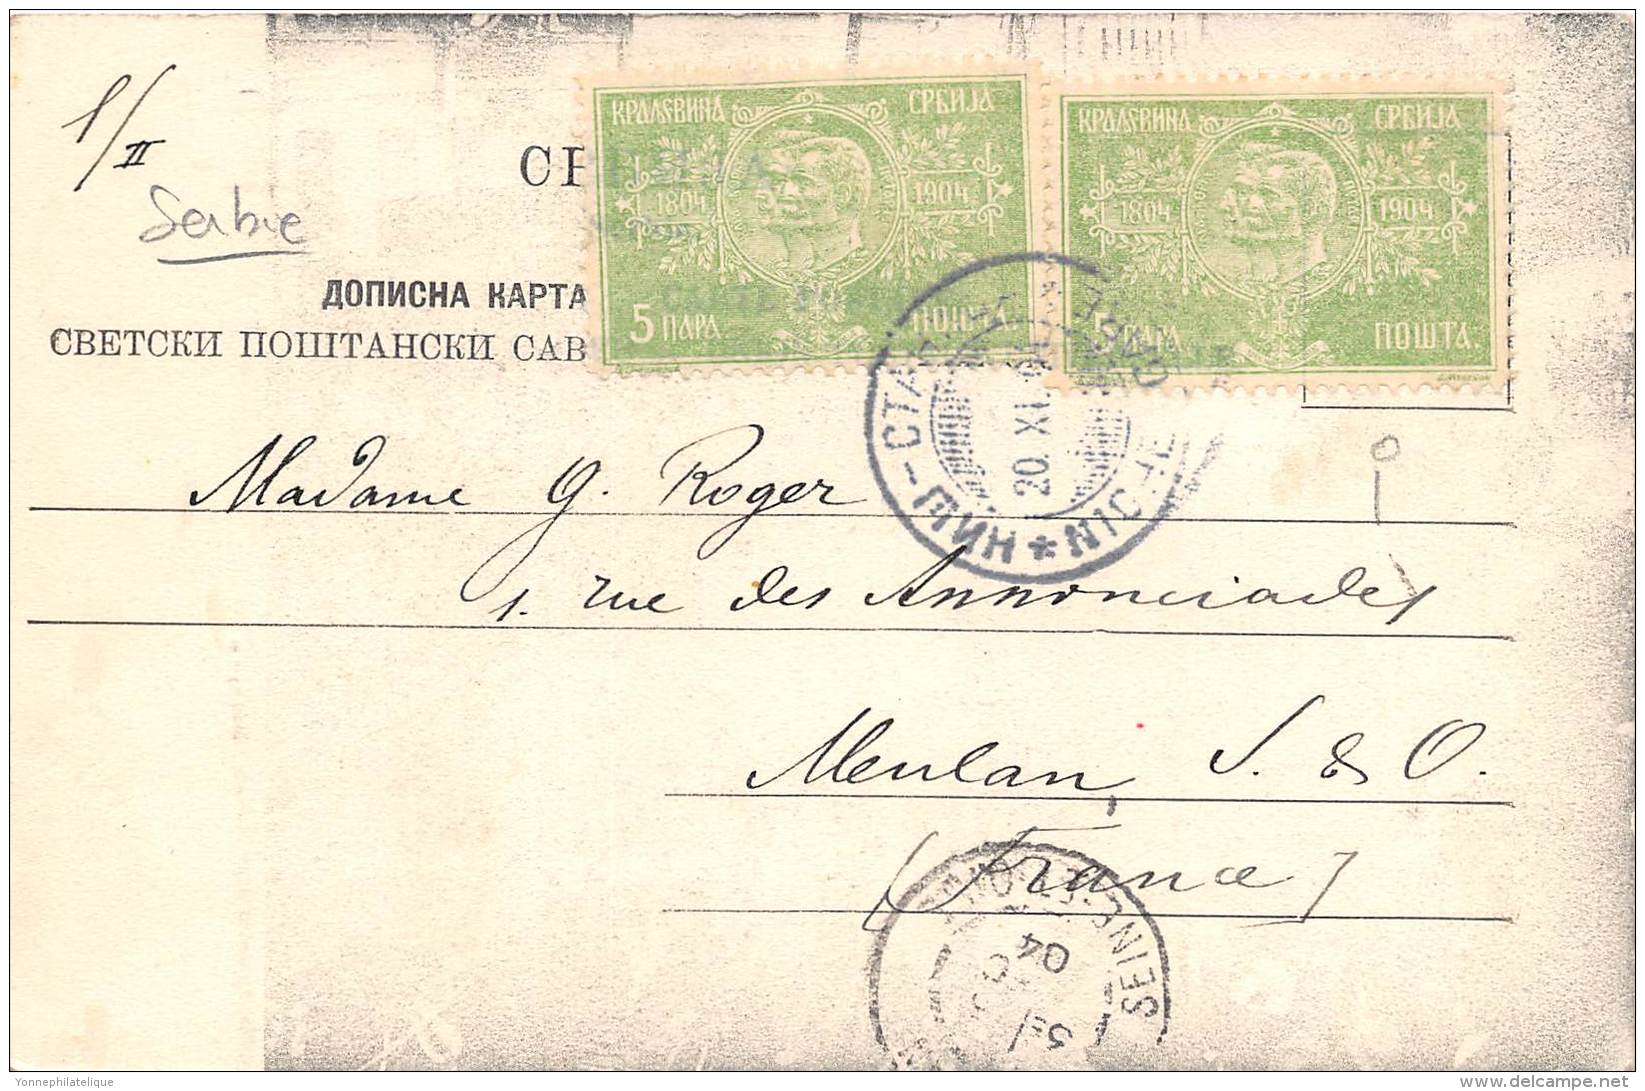 1/II
Serbie
КРАЉЕВИНА СРБИЈА
1804 1904
5 ПАРА ПОШТА
КРАЉЕВИНА СРБИЈА
1804 1904
ПАРА ПОШТА.
СР
ДОПИСНА КАРТА
СВЕТСКИ ПОШТАНСКИ САВ
НИШ-СТА
20. XI.
NICHE
Madame G. Roger
1. rue des Annonciades
Meulan, S. & O.
(France)
SEINE-ET-OISE
04
Yonnephilatelique
delcampe.net